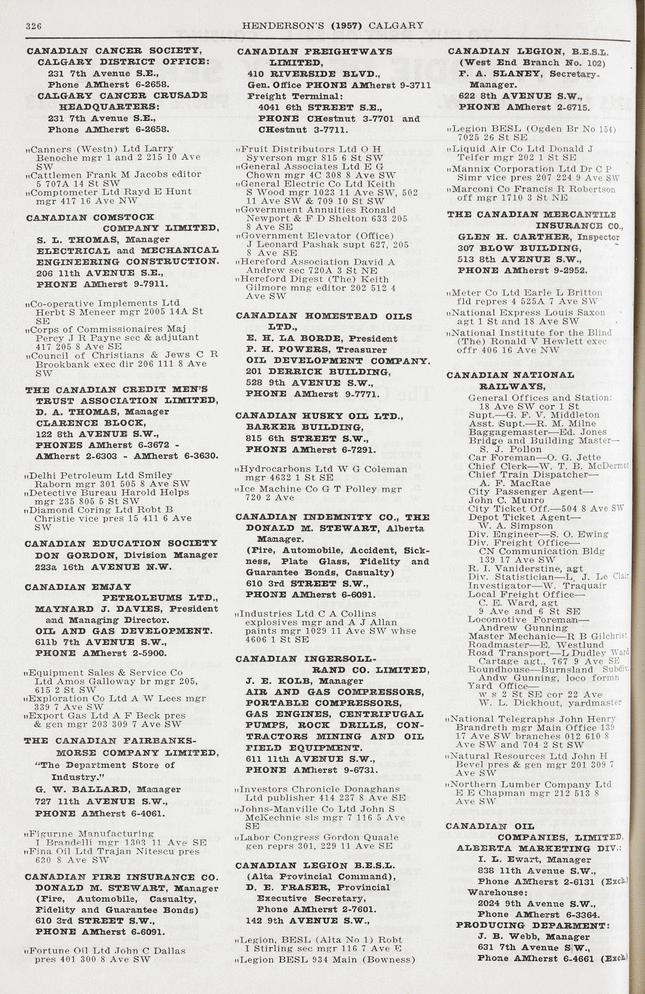 326
HENDERSON'S (1957) CALGARY
CANADIAN CANCER SOCIETY,
CALGARY DISTRICT OFFICE:
231 7th Avenue S.E.,
Phone AMherst 6-2658.
CALGARY CANCER CRUSADE
HEADQUARTERS:
231 7th Avenue S.E.,
Phone AMherst 6-2658.
"Canners (Westn) Ltd Larry
Benoche mgr 1 and 2 215 10 Ave
SW
"Cattlemen Frank M Jacobs editor
5 707A 14 St SW
"Comptometer Ltd Rayd E Hunt
mgr 417 16 Ave NW
CANADIAN COMSTOCK
COMPANY LIMITED,
S. L. THOMAS, Manager
ELECTRICAL and MECHANICAL
ENGINEERING CONSTRUCTION.
206 11th AVENUE S.E.,
PHONE AMherst
9-7911.
"Co-operative Implements Ltd
Herbt S Meneer mgr 2005 14A St
SE
"Corps of Commissionaires Maj
Percy J R Payne sec & adjutant
417 205 8 Ave SE
"Council of Christians & Jews C R
Brookbank exec dir 206 111 8 Ave
SW
CANADIAN CREDIT MEN'S
TRUST ASSOCIATION LIMITED,
D. A. THOMAS, Manager
CLARENCE BLOCK,
122 8th AVENUE S.W.,
PHONES AMherst 6-3672 -
AMherst 2-6303 - AMherst 6-3630.
"Delhi Petroleum Ltd Smiley
Raborn mgr 301 505 8 Ave SW
"Detective Bureau Harold Helps
mgr 235 805 5 St SW
"Diamond Coring Ltd Robt B
Christie vice pres 15 411 6 Ave
SW
CANADIAN EDUCATION SOCIETY
DON GORDON, Division Manager
223a 16th AVENUE N.W.
CANADIAN EMJAY
PETROLEUMS LTD.,
MAYNARD J. DAVIES, President
and Managing Director.
OIL AND GAS DEVELOPMENT.
611b 7th AVENUE S.W.,
PHONE AMherst 2-5900.
"Equipment Sales & Service Co
Ltd Amos Galloway br mgr 205,
615 2 St SW
"Exploration Co Ltd A W Lees mgr
339 7 Ave SW
"Export Gas Ltd A F Beck pres
& gen mgr 203 309 7 Ave SW
THE CANADIAN FAIRBANKS-
MORSE COMPANY LIMITED,
"The Department Store of
Industry."
G. W. BALLARD, Manager
727 11th AVENUE S.W.,
PHONE AMherst 6-4061.
"Figurine Manufacturing
I Brandelli mgr 1303 11 Ave SE
"Fina Oil Ltd Trajan Nitescu pres
630 8 Ave SW
CANADIAN FIRE INSURANCE CO.
DONALD M. STEWART, Manager
(Fire, Automobile, Casualty,
Fidelity and Guarantee Bonds)
610 3rd STREET S.W.,
PHONE AMherst
6-6091.
"Fortune Oil Ltd John C Dallas
pres 401 300 8 Ave SW
CANADIAN FREIGHTWAYS
LIMITED,
410 RIVERSIDE BLVD.,
Gen. Office PHONE AMherst 9-3711
Freight Terminal:
4041 6th STREET S.E.,
PHONE CHestnut 3-7701 and
CHestnut 3-7711.
"Fruit Distributors Ltd O H
Syverson mgr 815 6 St SW
"General Associates Ltd E G
Chown mgr 4C 308 8 Ave SW
"General Electric Co Ltd Keith
S Wood mgr 1023 11 Ave SW, 502
11 Ave SW & 709 10 St SW
"Government Annuities Ronald
Newport & F D Shelton 633 205
8 Ave SE
"Government Elevator (Office)
J Leonard Pashak supt 627, 205
8 Ave SE
"Hereford Association David A
Andrew sec 720A 3 St NE
"Hereford Digest (The) Keith
Gilmore mng editor 202 512 4
Ave SW
CANADIAN HOMESTEAD OILS
LTD.,
E. H. LA BORDE, President
P. H. POWERS, Treasurer
OIL DEVELOPMENT COMPANY.
201 DERRICK BUILDING,
528 9th AVENUE S.W.,
PHONE AMherst
9-7771.
CANADIAN HUSKY OIL LTD.,
BARKER BUILDING,
815 6th STREET S.W.,
PHONE AMherst
6-7291.
"Hydrocarbons Ltd W G Coleman
mgr 4632 1 St SE
"Ice Machine Co G T Polley mgr
720 2 Ave
CANADIAN INDEMNITY CO., THE
DONALD M. STEWART, Alberta
Manager.
(Fire, Automobile, Accident, Sick-
ness, Plate Glass, Fidelity and
Guarantee Bonds, Casualty)
610 3rd STREET S.W.,
PHONE AMherst
6-6091.
"Industries Ltd C A Collins
explosives mgr and A J Allan
paints mgr 1029 11 Ave SW whse
4606 1 St SE
CANADIAN INGERSOLL-
RAND CO. LIMITED,
J. E. KOLB, Manager
AIR AND GAS COMPRESSORS,
PORTABLE COMPRESSORS,
GAS ENGINES, CENTRIFUGAL
PUMPS, ROCK DRILLS, CON-
TRACTORS MINING AND OIL
FIELD EQUIPMENT.
611 11th AVENUE S.W.,
PHONE AMherst
9-6731.
"Investors Chronicle Donaghans
Ltd publisher 414 237 8 Ave SE
"Johns-Manville Co Ltd John S
McKechnie sls mgr 7 116 5 Ave
SE
"Labor Congress Gordon Quaale
gen reprs 301, 229 11 Ave SE
CANADIAN LEGION B.E.S.L.
(Alta Provincial Command),
D. E. FRASER, Provincial
Executive Secretary,
Phone AMherst 2-7601.
142 9th AVENUE S.W.,
"Legion, BESL (Alta No 1) Robt
I Stirling sec mgr 116 7 Ave E
"Legion BESL 934 Main (Bowness)
CANADIAN LEGION, B.E.S.L.
(West End Branch No. 102)
F. A. SLANEY, Secretary-
Manager.
622 8th AVENUE S.W.,
PHONE AMherst 2-6715.
"Legion BESL (Ogden Br No 154)
7025 26 St SE
"Liquid Air Co Ltd Donald J
Telfer mgr 202 1 St SE
"Mannix Corporation Ltd Dr C P
Simr vice pres 207 224 9 Ave SW
"Marconi Co Francis R Robertson
off mgr 1710 3 St NE
THE CANADIAN MERCANTILE
INSURANCE CO.,
GLEN H. CARTHER, Inspector
307 BLOW BUILDING,
513 8th AVENUE S.W.,
PHONE AMherst 9-2952.
"Meter Co Ltd Earle L Britton
fld repres 4 525A 7 Ave SW
"National Express Louis Saxon
agt 1 St and 18 Ave SW
"National Institute for the Blind
(The) Ronald V Hewlett exec
offr 406 16 Ave NW
CANADIAN NATIONAL
RAILWAYS,
General Offices and Station:
18 Ave SW cor 1 St
Supt.—G. F. V. Middleton
Asst. Supt.—R. M. Milne
Baggagemaster—Ed. Jones
Bridge and Building Master—
S. J. Pollon
Car Foreman—O. G. Jette
Chief Clerk—W. T. B. McDermot
Chief Train Dispatcher—
A. F. MacRae
City Passenger Agent—
John C. Munro
City Ticket Off.—504 8 Ave SW
Depot Ticket Agent—
W. A. Simpson
Div. Engineer—S. O. Ewing
Div. Freight Office—
CN Communication Bldg
139 17 Ave SW
R. I. Vaniderstine, agt
Div. Statistician—L. J. Le Clair
Investigator—W. Traquair
Local Freight Office—
C. E. Ward, agt
9 Ave and 6 St SE
Locomotive Foreman—
Andrew Gunning
Master Mechanic—R B Gilchrist
Roadmaster—E. Westlund
Road Transport—L Dudley Ward
Cartage agt., 767 9 Ave SE
Roundhouse—Burnsland Subdiv.
Andw Gunning, loco formn
Yard Office—
w s 2 St SE cor 22 Ave
W. L. Dickhout, yardmaster
"National Telegraphs John Henry
Brandreth mgr Main Office 139
17 Ave SW branches 012 610 8
Ave SW and 704 2 St SW
"Natural Resources Ltd John H
Bevel pres & gen mgr 201 309 7
Ave SW
"Northern Lumber Company Ltd
E E Chapman mgr 212 513 8
Ave SW
CANADIAN OIL
COMPANIES, LIMITED,
ALBERTA MARKETING DIV.:
I. L. Ewart, Manager
838 11th Avenue S.W.,
Phone AMherst 2-6131 (Exch.)
Warehouse:
2024 9th Avenue S.W.,
Phone AMherst 6-3364.
PRODUCING DEPARMENT:
J. B. Webb, Manager
631 7th Avenue S.W.,
Phone AMherst 6-4661 (Exch.)